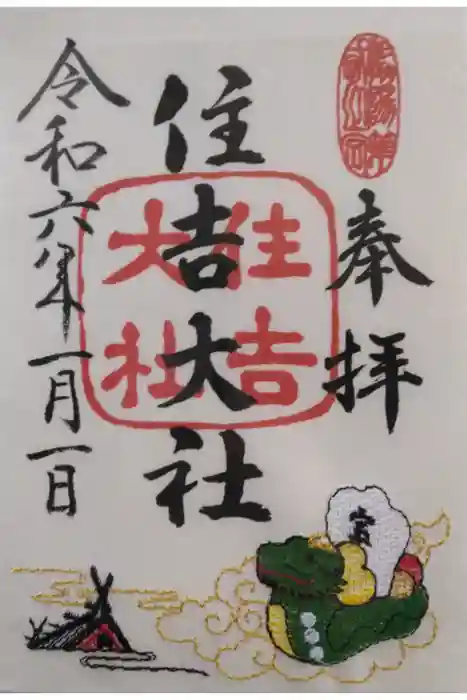 奉拝
住吉大社
住吉
大社
令和六年一月一日